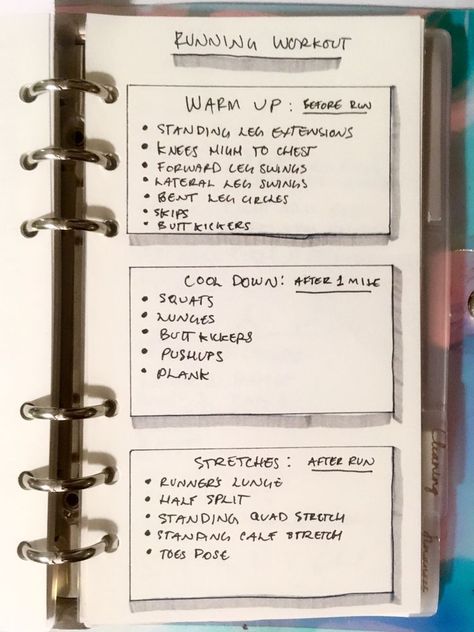 RUNNING WORKOUT
WARM UP : BEFORE RUN
• STANDING LEG EXTENSIONS
• KNEES HIGH TO CHEST
• FORWARD LEG SWINGS
• LATERAL LEG SWINGS
• BENT LEG CIRCLES
• SKIPS
• BUTT KICKERS
COOL DOWN: AFTER 1 MILE
• SQUATS
• LUNGES
• BUTT KICKERS
• PUSHUPS
• PLANK
STRETCHES : AFTER RUN
• RUNNERS LUNGE
• HALF SPLIT
• STANDING QUAD STRETCH
• STANDING CALF STRETCH
• TOES POSE
Cleaning